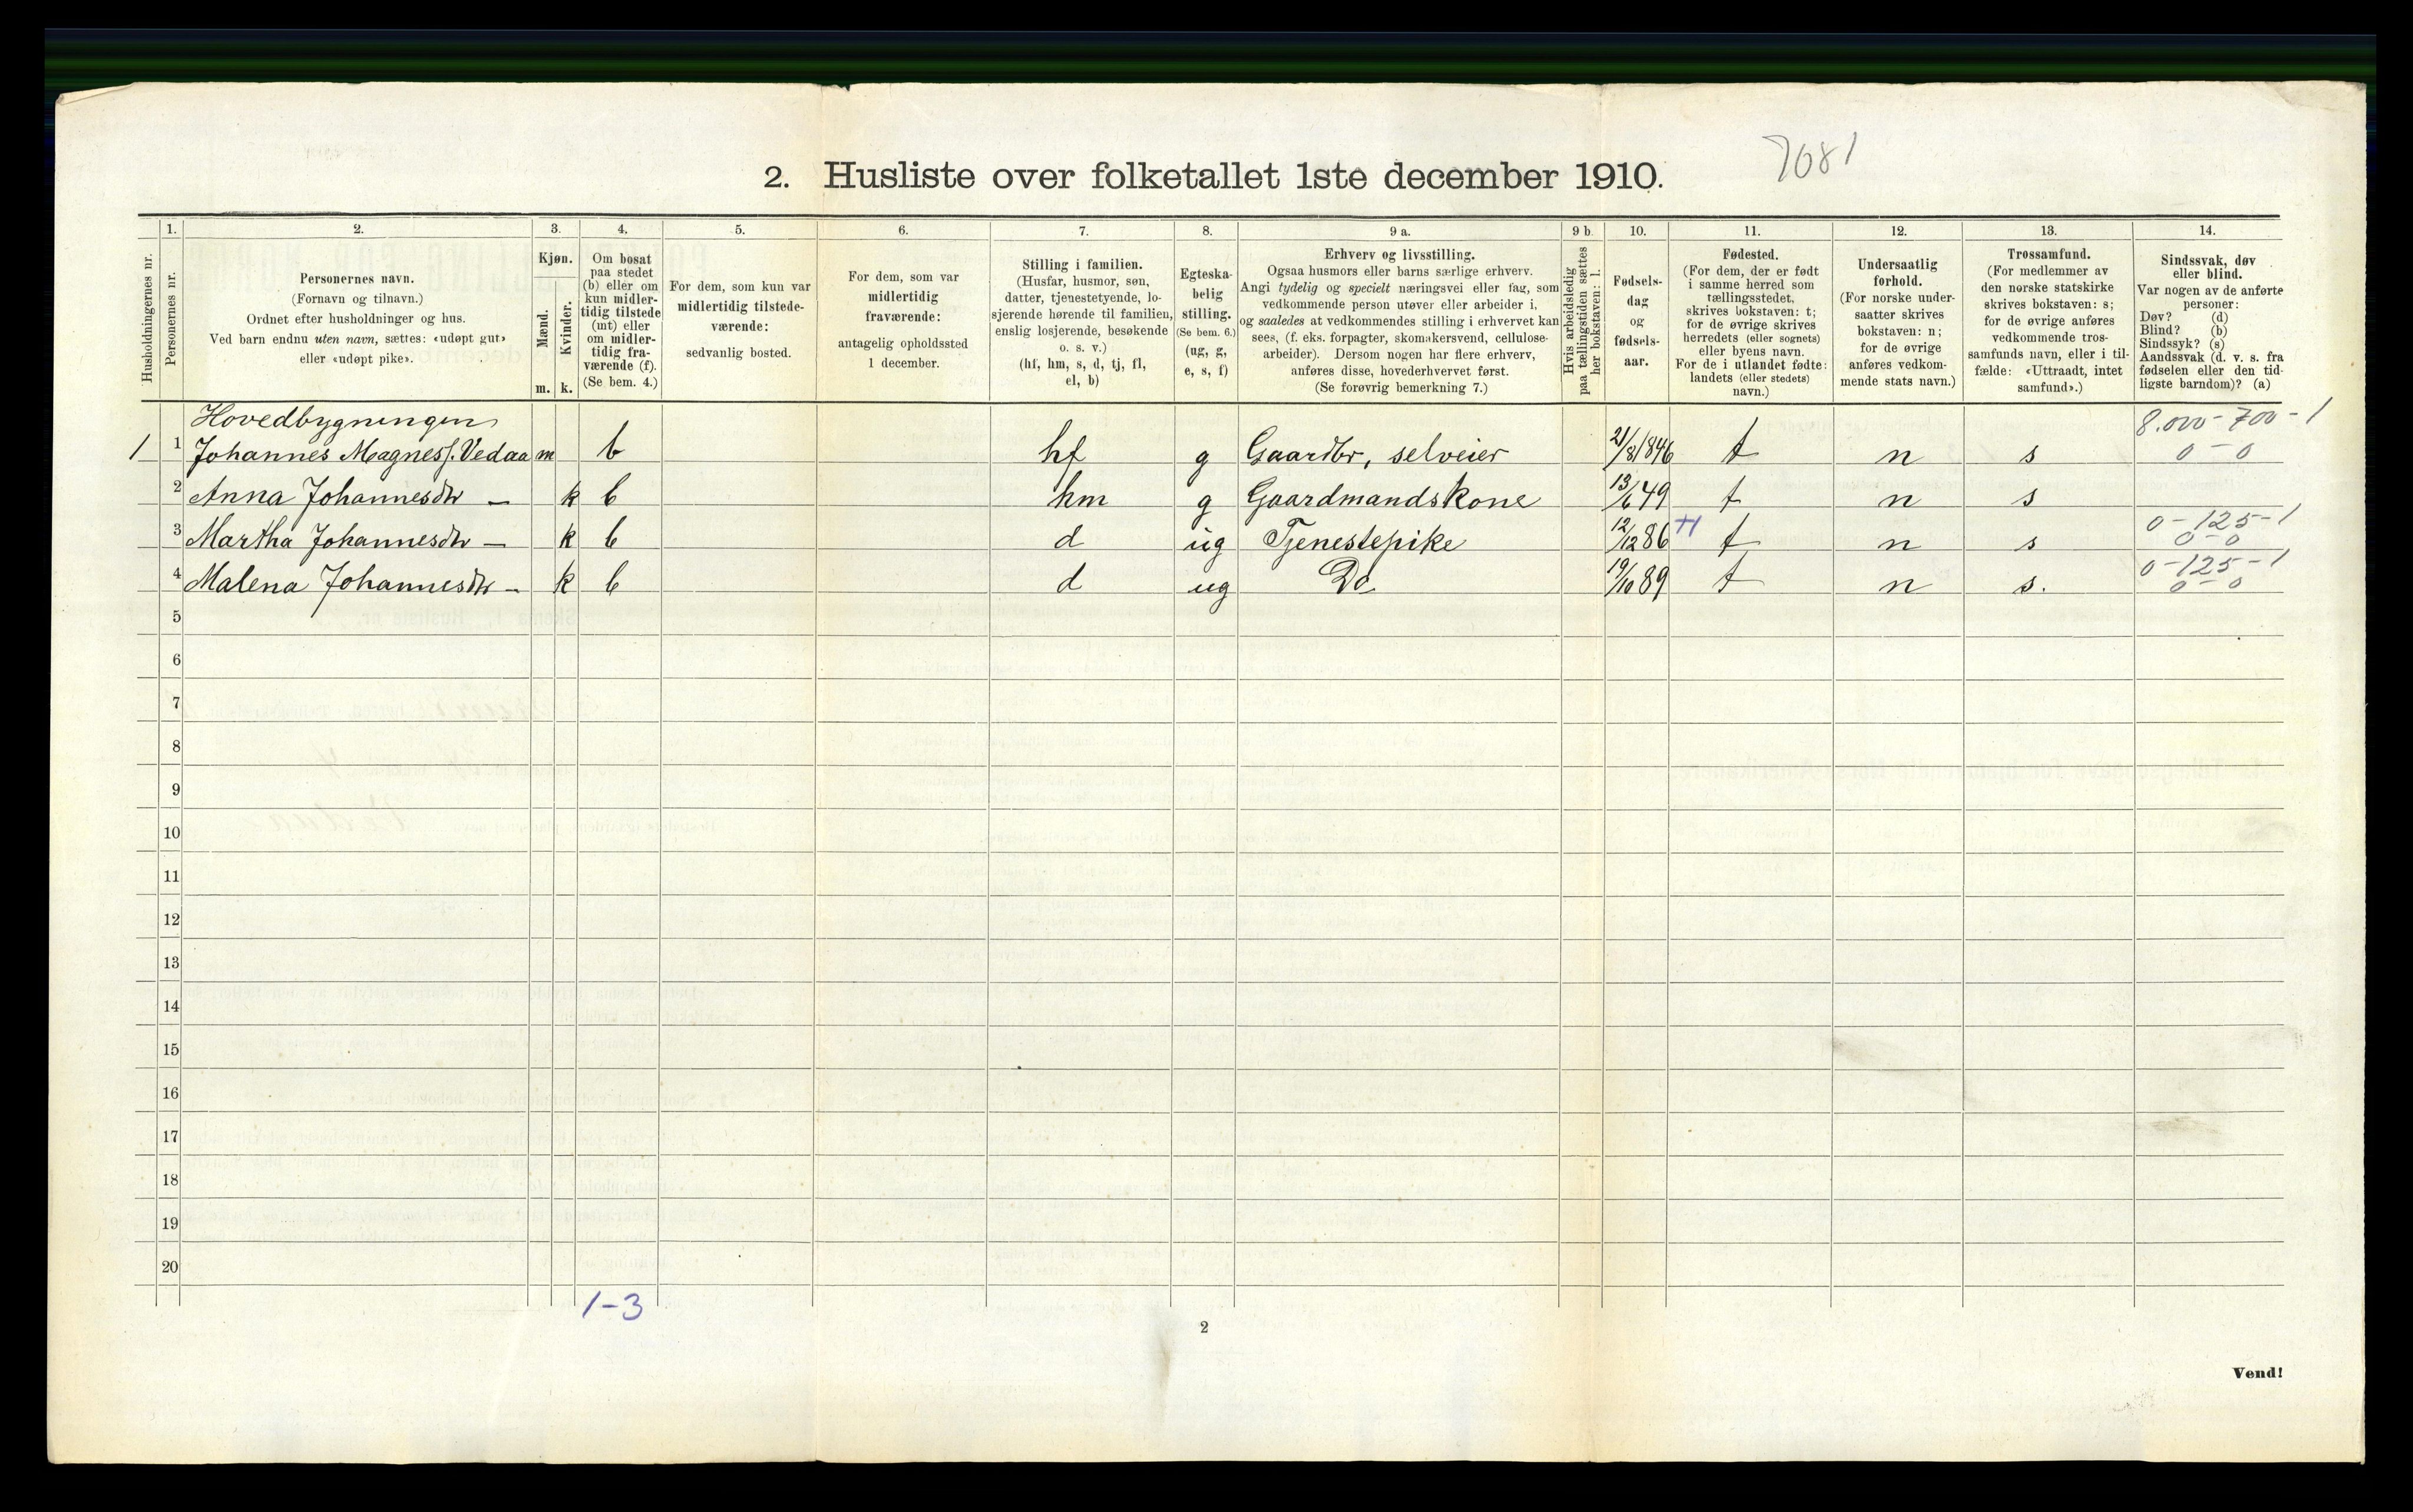 7081
2. Husliste over folketallet 1ste december 1910.
Husholdningernes nr.
1.
Personernes nr.
2.
Personernes navn.
(Fornavn og tilnavn.)
Ordnet efter husholdninger og hus.
Ved barn endnu uten navn, sættes: «udøpt gut»
eller «udøpt pike».
3.
Kjøn.
Mænd.
Kvinder.
m. k.
4.
Om bosat
paa stedet
(b) eller om
kun midler-
tidig tilstede
(mt) eller
om midler-
tidig fra-
værende (f).
(Se bem. 4.)
5.
For dem, som kun var
midlertidig tilstede-
værende:
sedvanlig bosted.
6.
For dem, som var
midlertidig
fraværende:
antagelig opholdssted
1 december.
7.
Stilling i familien.
(Husfar, husmor, søn,
datter, tjenestetyende, lo-
sjerende hørende til familien,
enslig losjerende, besøkende
o. s. v.)
(hf, hm, s, d, tj, fl,
el, b)
8.
Egteska-
belig
stilling.
(Se bem. 6.)
(ug, g,
e, s, f)
9 a.
Erhverv og livsstilling.
Ogsaa husmors eller barns særlige erhverv.
Angi tydelig og specielt næringsvei eller fag, som
vedkommende person utøver eller arbeider i,
og saaledes at vedkommendes stilling i erhvervet kan
sees, (f. eks. forpagter, skomakersvend, cellulose-
arbeider). Dersom nogen har flere erhverv,
anføres disse, hovederhvervet først.
(Se forøvrig bemerkning 7.)
9 b.
Hvis arbeidsledig
paa tællingstiden sættes
her bokstaven: l.
10.
Fødsels-
dag
og
fødsels-
aar.
11.
Fødested.
(For dem, der er født
i samme herred som
tællingsstedet,
skrives bokstaven: t;
for de øvrige skrives
herredets (eller sognets)
eller byens navn.
For de i utlandet fødte:
landets (eller stedets)
navn.)
12.
Undersaatlig
forhold.
(For norske under-
saatter skrives
bokstaven: n;
for de øvrige
anføres vedkom-
mende stats navn.)
13.
Trossamfund.
(For medlemmer av
den norske statskirke
skrives bokstaven: s;
for de øvrige anføres
vedkommende tros-
samfunds navn, eller i til-
fælde: «Uttraadt, intet
samfund».)
14.
Sindssvak, døv
eller blind.
Var nogen av de anførte
personer:
Døv? (d)
Blind? (b)
Sindssyk? (s)
Aandssvak (d. v. s. fra
fødselen eller den tid-
ligste barndom)? (a)
Hovedbygningen 8.000-700-1
1 1 Johannes Magness. Vedaa m b hf g Gaardbr, selveier 21/8 1846 t n s 0-0
2 Anna Johannesdtr — k b hm g Gaardmandskone 13/6 49 t n s
3 Martha Johannesdtr — k b d ug Tjenestepike 12/12 86 t n s 0-125-1 0-0
4 Malena Johannesdtr — k b d ug Do 19/10 89 t n s. 0-125-1 0-0
5
6
7
8
9
10
11
12
13
14
15
16
17
18
19
20
1-3
2
Vend!